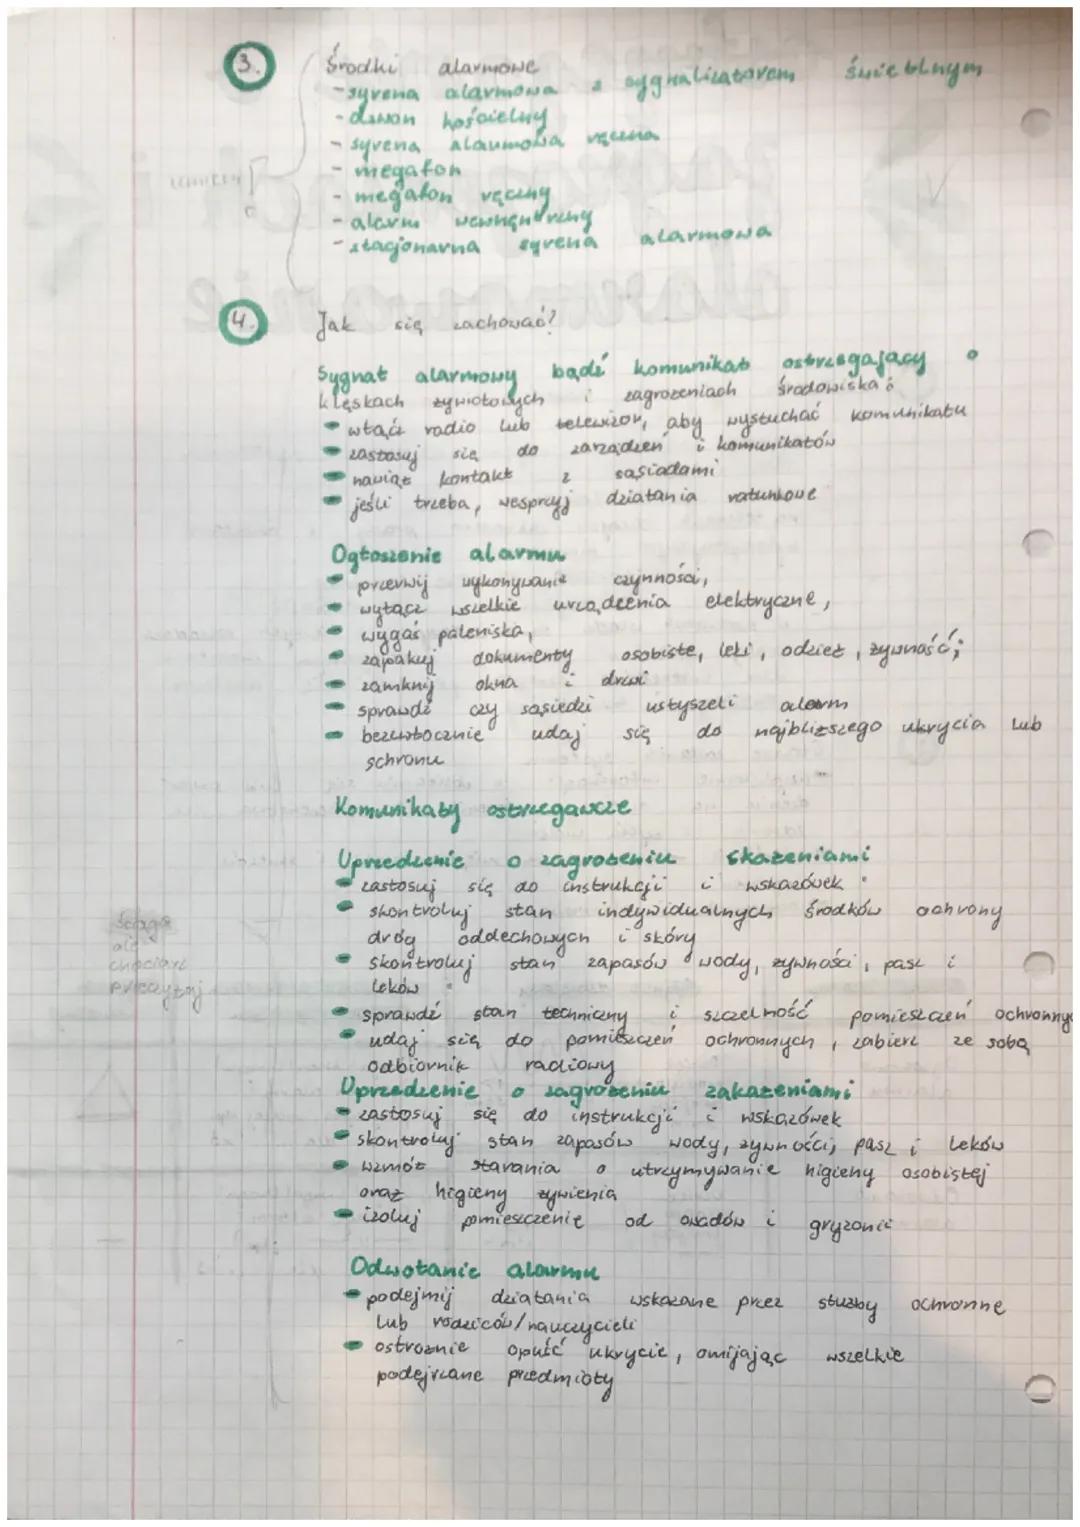 3.
Środki alarmowe
- syrena alarmowa z sygnalizatorem świetlnym
- dzwon kościelny
- syrena alarmowa ręczna
- megafon
- megafon ręczny
- alarm wewnętrzny
- stacjonarna syrena alarmowa
4.
Jak się zachować?
Sygnał alarmowy bądź komunikat ostrzegający o
klęskach żywiołowych i zagrożeniach środowiska:
• włącz radio lub telewizor, aby wysłuchać komunikatu
• zastosuj się do zarządzeń i komunikatów
• nawiąż kontakt z sąsiadami
• jeśli trzeba, wesprzyj działania ratunkowe
Ogłoszenie alarmu
• przerwij wykonywanie czynności,
• wyłącz wszelkie urządzenia elektryczne,
• wygaś paleniska,
• zapakuj dokumenty osobiste, leki, odzież, żywność;
• zamknij okna i drzwi
• sprawdź czy sąsiedzi usłyszeli alarm
• bezzwłocznie udaj się do najbliższego ukrycia lub
schronu
Komunikaty ostrzegawcze
Uprzedzenie o zagrożeniu skażeniami
• zastosuj się do instrukcji i wskazówek
• skontroluj stan indywidualnych środków ochrony
dróg oddechowych i skóry
• skontroluj stan zapasów wody, żywności, pasz i
leków
ściąga
ale
chociaż
przeczytaj
• sprawdź stan techniczny i szczelność pomieszczeń ochronnyc
• udaj się do pomieszczeń ochronnych, zabierz ze sobą
odbiornik radiowy
Uprzedzenie o zagrożeniu zakażeniami
• zastosuj się do instrukcji i wskazówek
• skontroluj stan zapasów wody, żywności, pasz i leków
• wzmóż starania o utrzymywanie higieny osobistej
oraz higieny żywienia
• izoluj pomieszczenie od owadów i gryzonii
Odwołanie alarmu
• podejmij działania wskazane przez służby ochronne
lub rodziców/nauczycieli
• ostrożnie opuść ukrycie, omijając wszelkie
podejrzane przedmioty